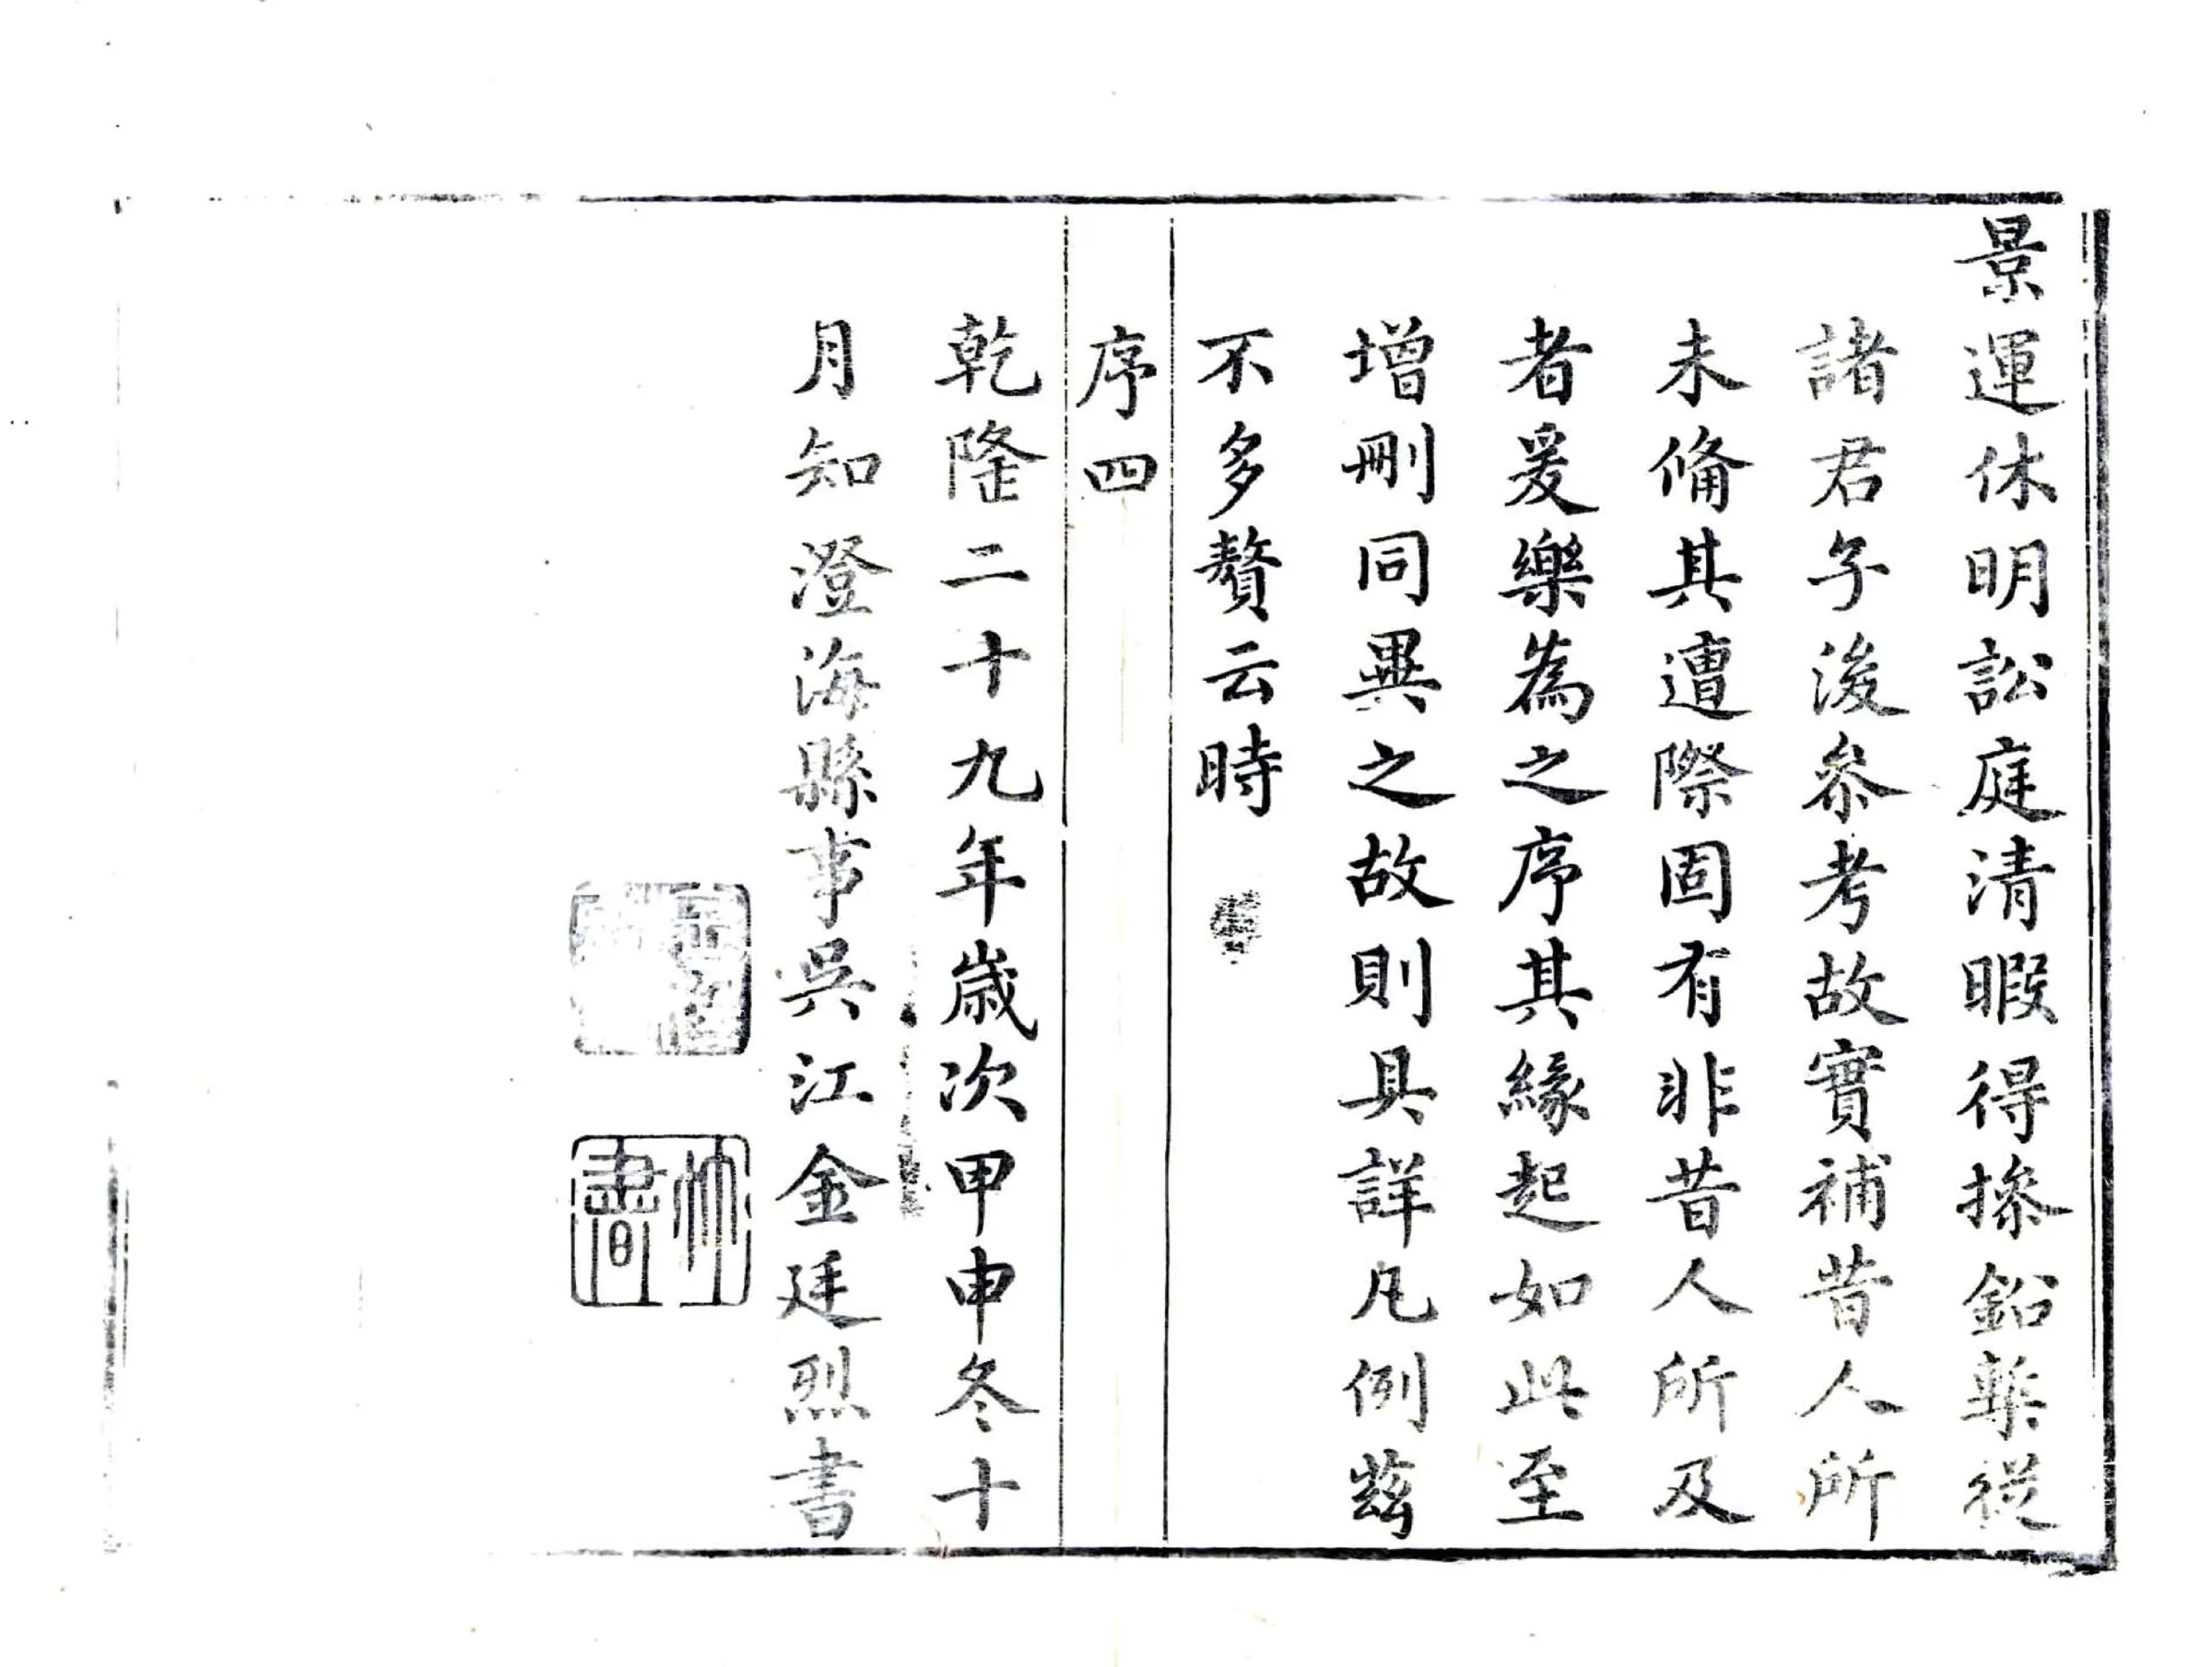 景運休明訟庭清暇得搽鉛槧從
諸君子後叅考故實補昔人所
未備其遭際固有非昔人所及
者爰樂為之序其緣起如此至
增刪同異之故則具詳凡例茲
不多贅云時
序四
乾隆二十九年歲次甲申冬十
月知澄海縣事吳江金廷烈書